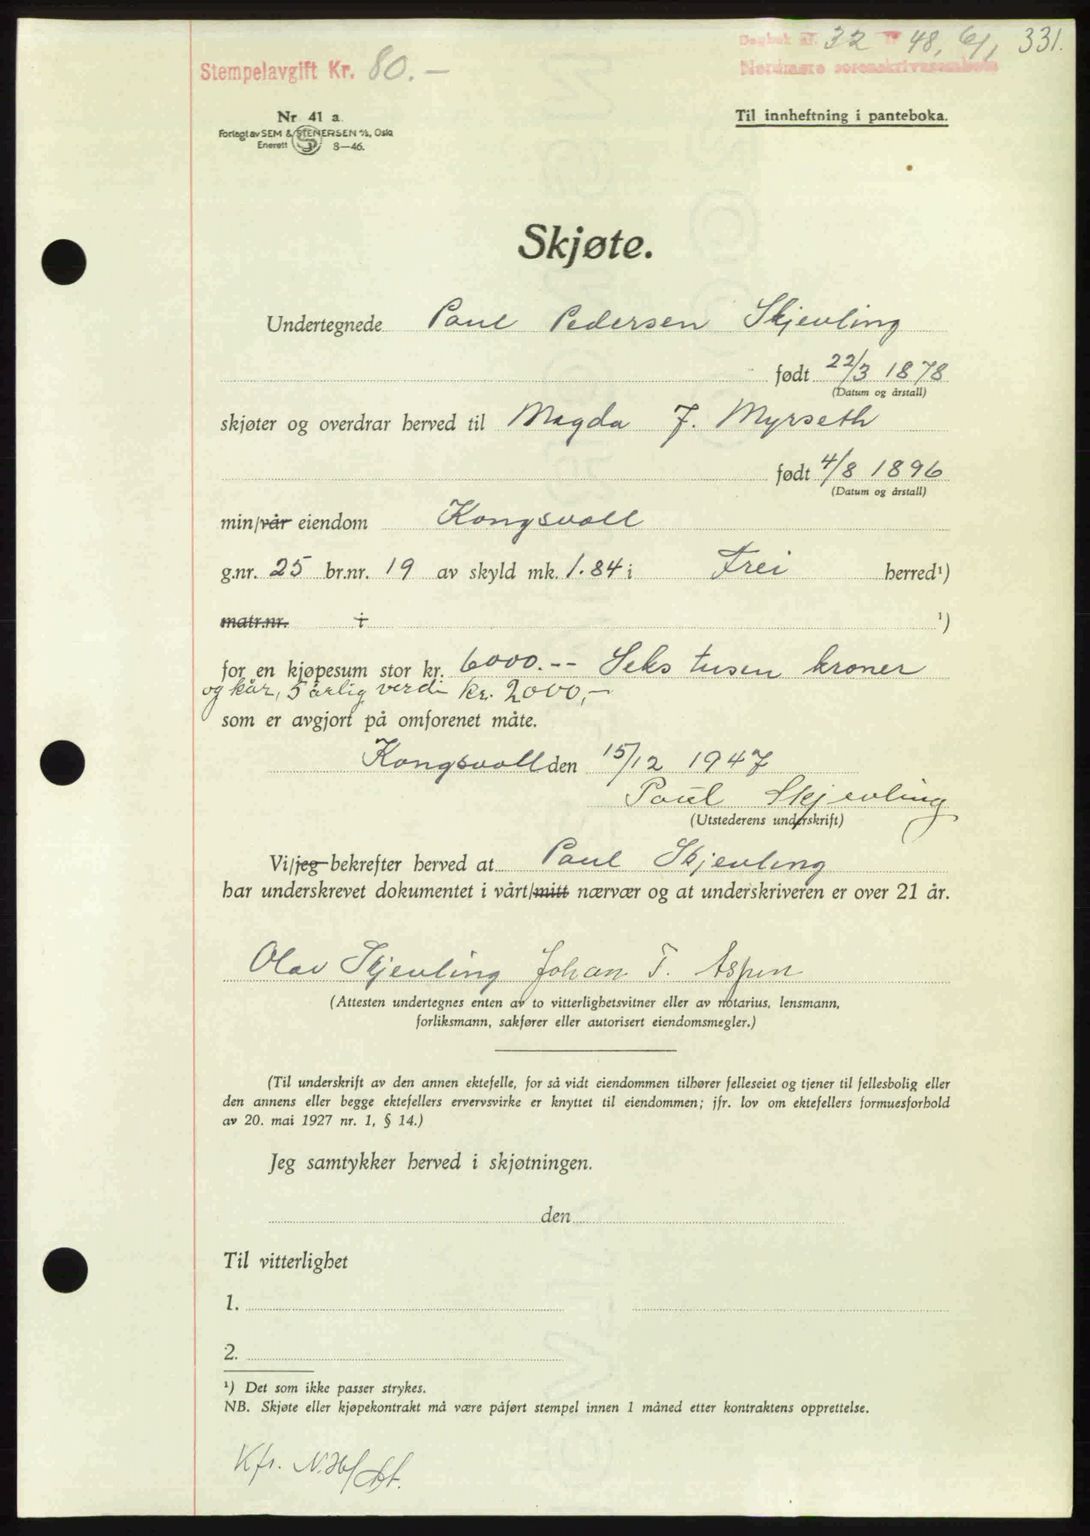 Stempelavgift Kr. 80.-
Dagbok nr. 32 48, 6/1 331.
Nordmøre sorenskriverembete
Nr 41 a.
Forlagt av SEM & STENERSEN A/S, Oslo
Enerett SP 8-46.
Til innheftning i panteboka.
Skjøte.
Undertegnede Paul Pedersen Skjevling
født 22/3 1878
(Datum og årstall)
skjøter og overdrar herved til Magda J. Myrseth
født 4/8 1896
(Datum og årstall)
min/vår eiendom Kongsvoll
g.nr. 25 br.nr. 19 av skyld mk. 1.84 i Frei herred¹)
matr.nr. i ¹)
for en kjøpesum stor kr. 6000.-- Seks tusen kroner
og kår, 5 årlig verdi kr. 2000,-
som er avgjort på omforenet måte.
Kongsvoll den 15/12 1947
Paul Skjevling
(Utstederens underskrift)
Vi/jeg bekrefter herved at Paul Skjevling
har underskrevet dokumentet i vårt/mitt nærvær og at underskriveren er over 21 år.
Olav Skjevling Johan T. Aspen
(Attesten undertegnes enten av to vitterlighetsvitner eller av notarius, lensmann,
forliksmann, sakfører eller autorisert eiendomsmegler.)
(Til underskrift av den annen ektefelle, for så vidt eiendommen tilhører felleseiet og tjener til fellesbolig eller
den annens eller begge ektefellers ervervsvirke er knyttet til eiendommen; jfr. lov om ektefellers formuesforhold
av 20. mai 1927 nr. 1, § 14.)
Jeg samtykker herved i skjøtningen.
den
Til vitterlighet
1.
2.
¹) Det som ikke passer strykes.
NB. Skjøte eller kjøpekontrakt må være påført stempel innen 1 måned etter kontraktens opprettelse.
Kfr.